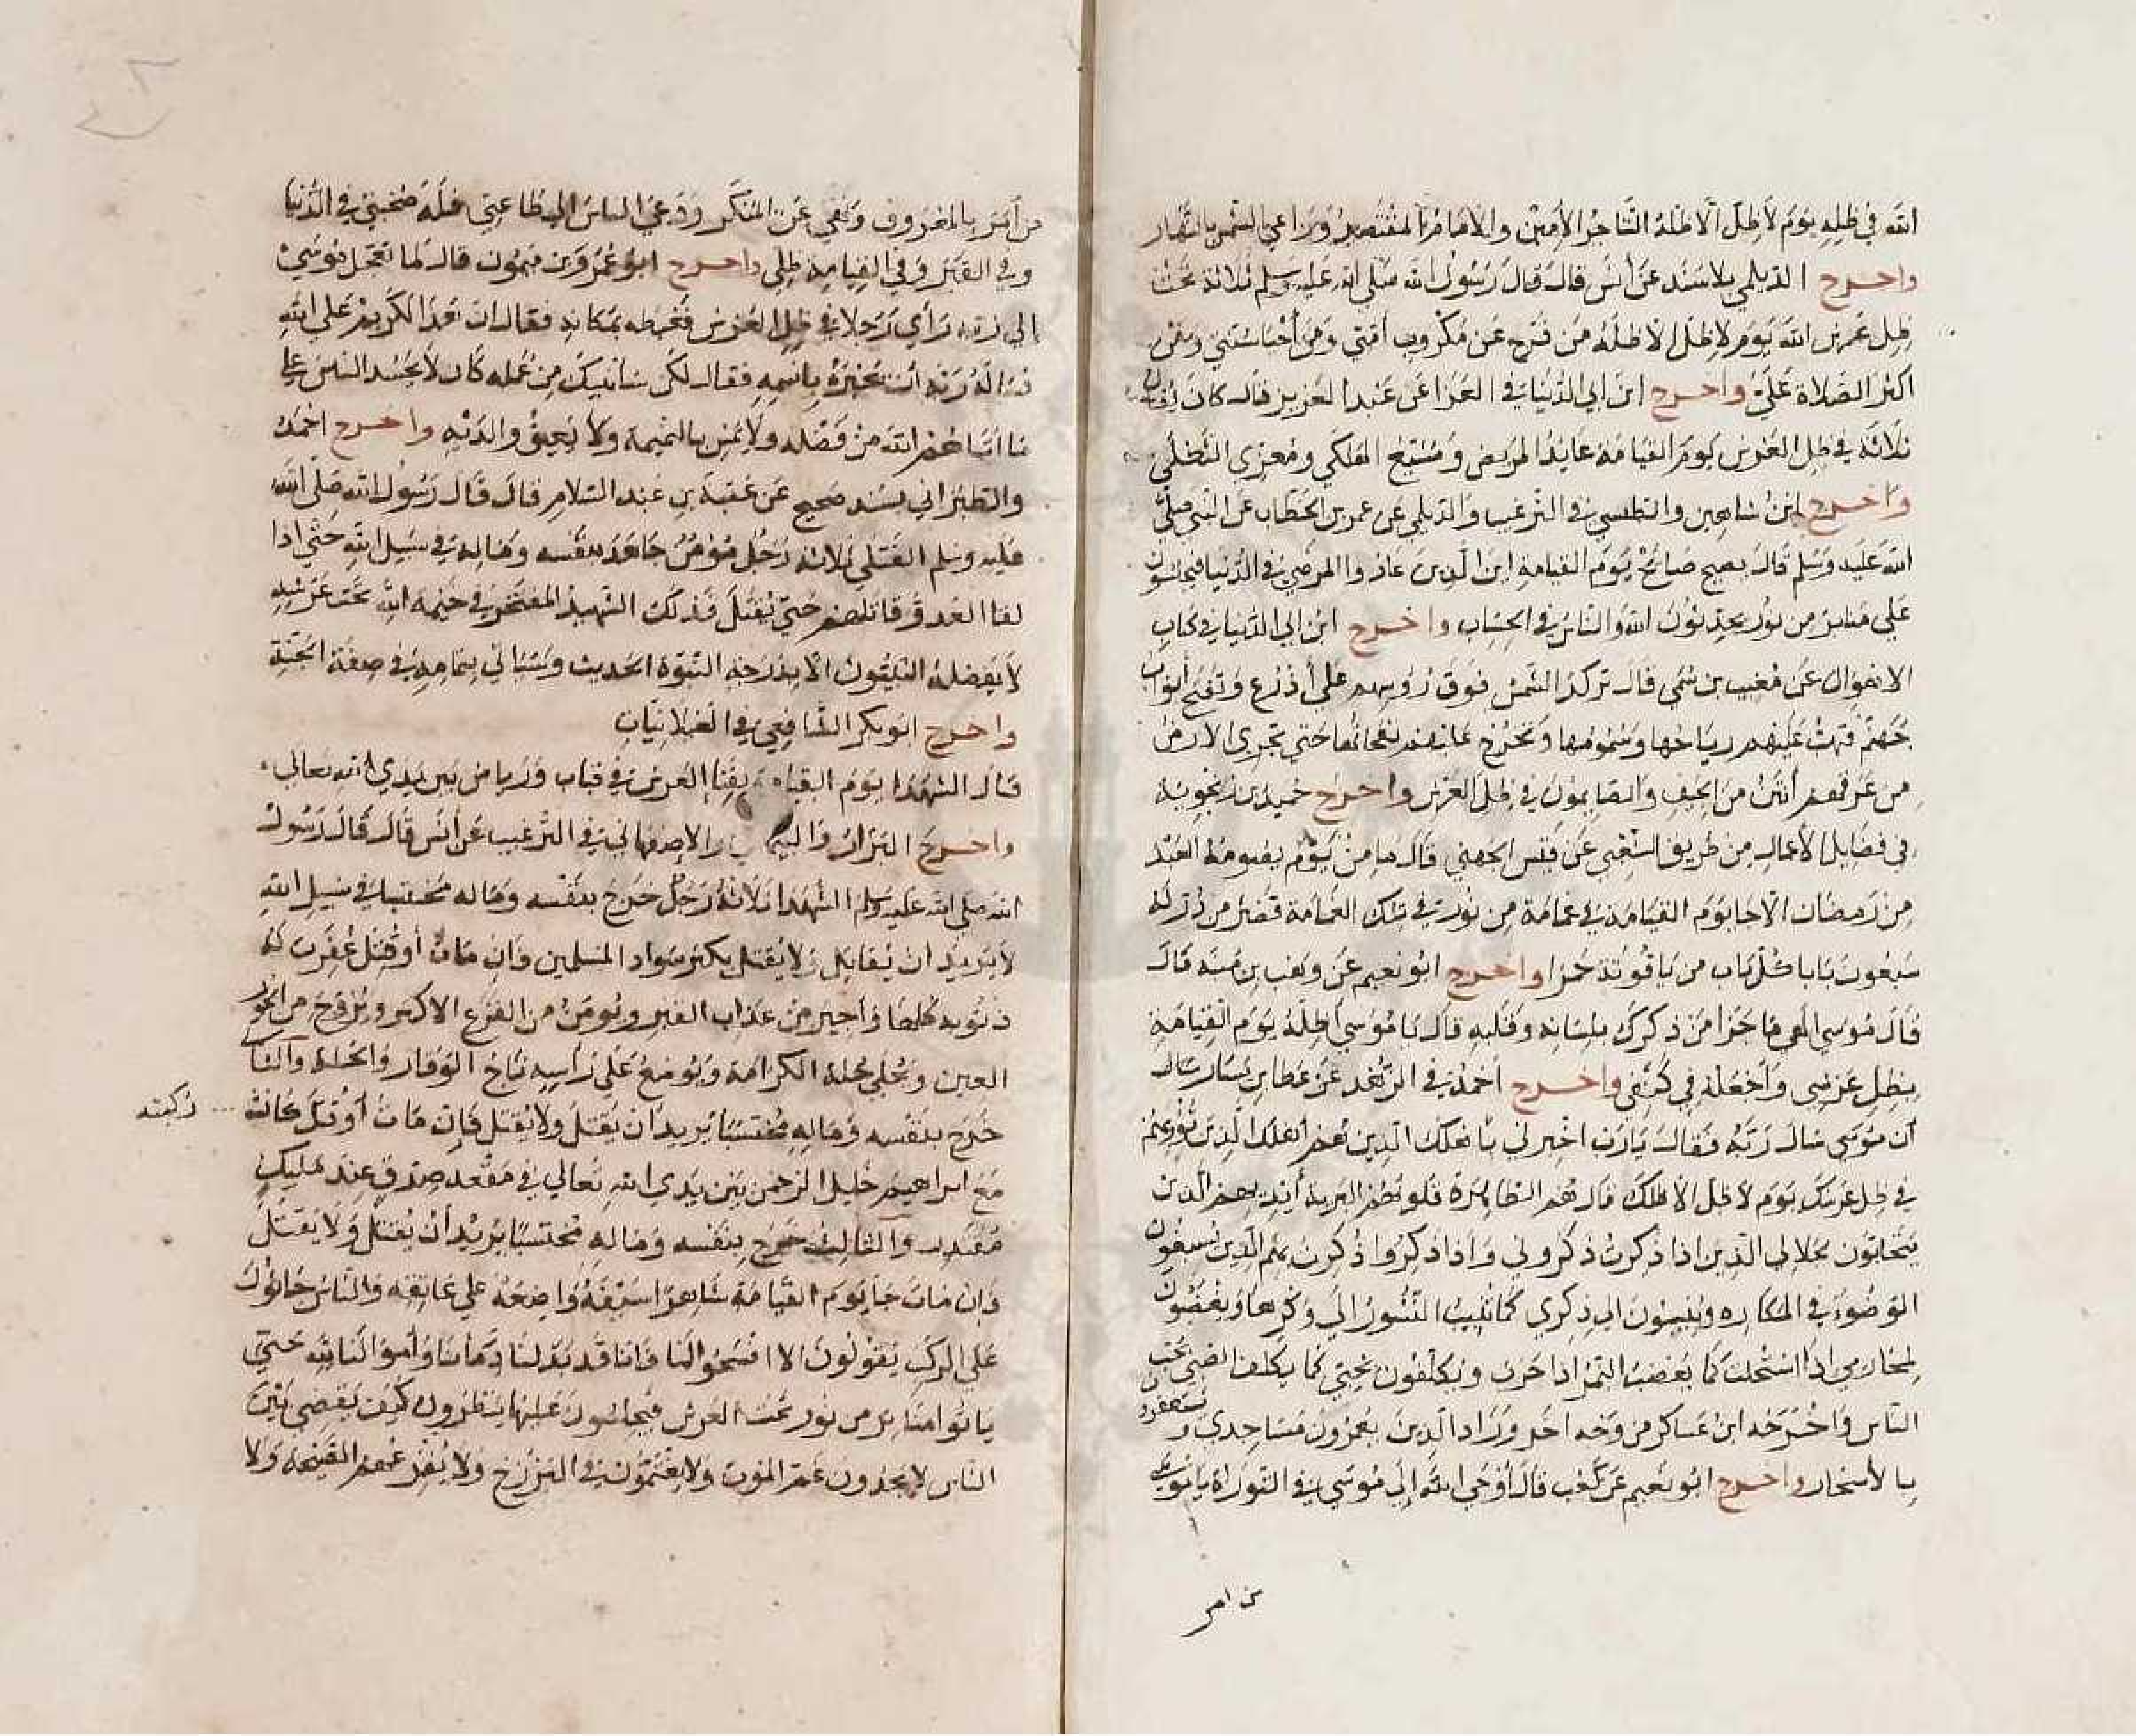 الله في ظله يوم لا ظل الا ظله التاجر الأمين والامام المقتصد وراعي الشمس بالنهار
واخرج الديلمي بلا سند عن أنس قال قال رسول الله صلى الله عليه وسلم ثلاثة تحت
ظل عرش الله يوم لا ظل الا ظله من فرج عن مكروب امتي ومن أحيا سنتي ومن
اكثر الصلاة علي واخرج ابن ابي الدنيا في العزا عن عبد العزيز قال كان يقال
ثلاثة في ظل العرش يوم القيامة عايد المريض ومشيع الهلكي ومعزي الثكلي
واخرج ابن شاهين والطلسي في الترغيب والديلمي عن عمر بن الخطاب عن النبي صلى
الله عليه وسلم قال يصيح صائح يوم القيامة اين الذين عادوا المرضي في الدنيا فيجلسون
علي منابر من نور يحدثون الله والناس في الحساب واخرج ابن ابي الدنيا في كتاب
الاهوال عن مغيث بن سمي قال تركد الشمس فوق رؤسهم علي أذرع وتفتح أبواب
جهنم فتهب عليهم رياحها وسمومها وتخرج عليهم نفحاتها حتي تجري الارض
من عرقهم أنتن من الجيف والصايمون في ظل العرش واخرج حميد بن زنجوية
في فضايل الأعمال من طريق الشعبي عن قيس الجهني قال ما من يوم يصومه العبد
من رمضان الا جا يوم القيامة في غمامة من نور في تلك الغمامة قصر من در له
سبعون بابا كل باب من ياقوتة حمرا واخرج ابو نعيم عن وهب بن منبه قال
قال موسي الهي ما جزا من ذكرك بلسانه وقلبه قال يا موسي أظله يوم القيامة
بظل عرشي وأجعله في كنفي واخرج احمد في الزهد عن عطا بن يسار قال
أن موسي سال ربه فقال يارب اخبرني باهلك الذين هم أهلك الذين تؤويهم
في ظل عرشك يوم لا ظل الا ظلك قال هم الطاهرة قلوبهم البرية أيديهم الذين
يتحابون بجلالي الذين اذا ذكرت ذكروني واذا ذكروا ذكرت بهم الذين يسبغون
الوضوء في المكاره وينيبون الي ذكري كما تنيب النسور الي وكرها ويغضبون
لمحارمي اذا استحلت كما يغضب النمر اذا حرب ويكلفون بحبي كما يكلف الصبي بحب
الناس واخرجه ابن عساكر من وجه اخر وزاد الذين يعمرون مساجدي ويستغفرون
بالأسحار واخرج ابو نعيم عن كعب قال أوحي الله إلي موسي في التوراة يا موسي
من امر
من أمر بالمعروف ونهي عن المنكر ودعي الناس الي طاعتي فله صحبتي في الدنيا
وفي القبر وفي القيامة ظلي واخرج ابو عمرو بن ميمون قال لما تعجل موسي
إلي ربه رأي رجلا في ظل العرش فغبطه بمكانه فقال ان هذا لكريم علي الله
فسأل ربه أن يخبره باسمه فقال لكن سانبيك من عمله كان لا يحسد الناس علي
ما اتاهم الله من فضله ولا يمش بالنميمة ولا يعق والديه واخرج احمد
والطبراني بسند صحيح عن عتبة بن عبد السلام قال قال رسول الله صلى الله
عليه وسلم القتلي ثلاثة رجل مؤمن جاهد بنفسه وماله في سبيل الله حتي اذا
لقا العدو قاتلهم حتي يقتل فذلك الشهيد المفتخر في خيمة الله تحت عرشه
لا يفضله النبيون الا بدرجة النبوة الحديث وسياتي بتمامه في صفة الجنة
واخرج ابو بكر الشافعي في الغيلانيات
قال الشهدا يوم القيامة بفنا العرش في قباب ورياض بين يدي الله تعالي
واخرج البزار والبيهقي والاصفهاني في الترغيب عن أنس قال قال رسول
الله صلى الله عليه وسلم الشهدا ثلاثة رجل خرج بنفسه وماله محتسبا في سبيل الله
لا يريد ان يقاتل ولا يقتل يكثر سواد المسلمين فان مات أو قتل غفرت له
ذنوبه كلها وأجير من عذاب القبر ويومن من الفزع الاكبر ويزوج من الحور
العين ويحلي حلة الكرامة ويوضع علي رأسه تاج الوقار والخلد والثاني
خرج بنفسه وماله محتسبا يريد ان يقتل ولا يقتل فان مات أو قتل كانت ركبته
مع ابراهيم خليل الرحمن بين يدي الله تعالي في مقعد صدق عند مليك
مقتدر والثالث خرج بنفسه وماله محتسبا يريد أن يقتل ولا يقتل
فان مات جا يوم القيامة شاهرا سيفه واضعه علي عاتقه والناس جاثون
علي الركب يقولون الا افسحوا لنا فانا قد بذلنا دمائنا وأموالنا لله حتي
ياتوا منابر من نور تحت العرش فيجلسون عليها ينظرون كيف يقضي بين
الناس لا يجدون غم الموت ولا يغتمون في البرزخ ولا يفزعهم الصيحة ولا